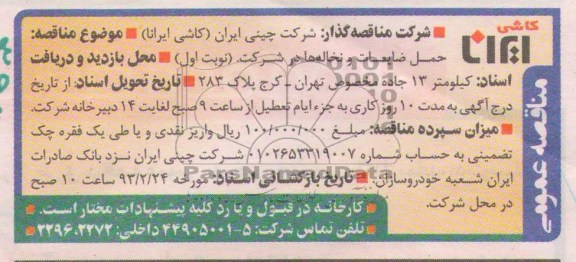 کاشی
ایرانا
مناقصه عمومی
■ شرکت مناقصه‌گذار: شرکت چینی ایران (کاشی ایرانا) ■ موضوع مناقصه:
حمل ضایعات و نخاله‌ها در شرکت. (نوبت اول) ■ محل بازدید و دریافت
اسناد: کیلومتر ۱۳ جاده مخصوص تهران ـ کرج پلاک ۲۸۳ ■ تاریخ تحویل اسناد: از تاریخ
درج آگهی به مدت ۱۰ روز کاری به جزء ایام تعطیل از ساعت ۹ صبح لغایت ۱۴ دبیرخانه شرکت.
■ میزان سپرده مناقصه: مبلغ ۱۰۰/۰۰۰/۰۰۰ ریال واریز نقدی و یا طی یک فقره چک
تضمینی به حساب شماره ۰۱۰۲۶۵۳۳۱۹۰۰۷ شرکت چینی ایران نزد بانک صادرات
ایران شعبه خودروسازان. ■ تاریخ بازگشائی اسناد: مورخه ۹۳/۲/۲۴ ساعت ۱۰ صبح
در محل شرکت.
■ کارخانه در قبول و یا رد کلیه پیشنهادات مختار است.
■ تلفن تماس شرکت: ۵-۴۴۹۰۵۰۰۱ داخلی: ۲۲۷۲-۲۲۹۶